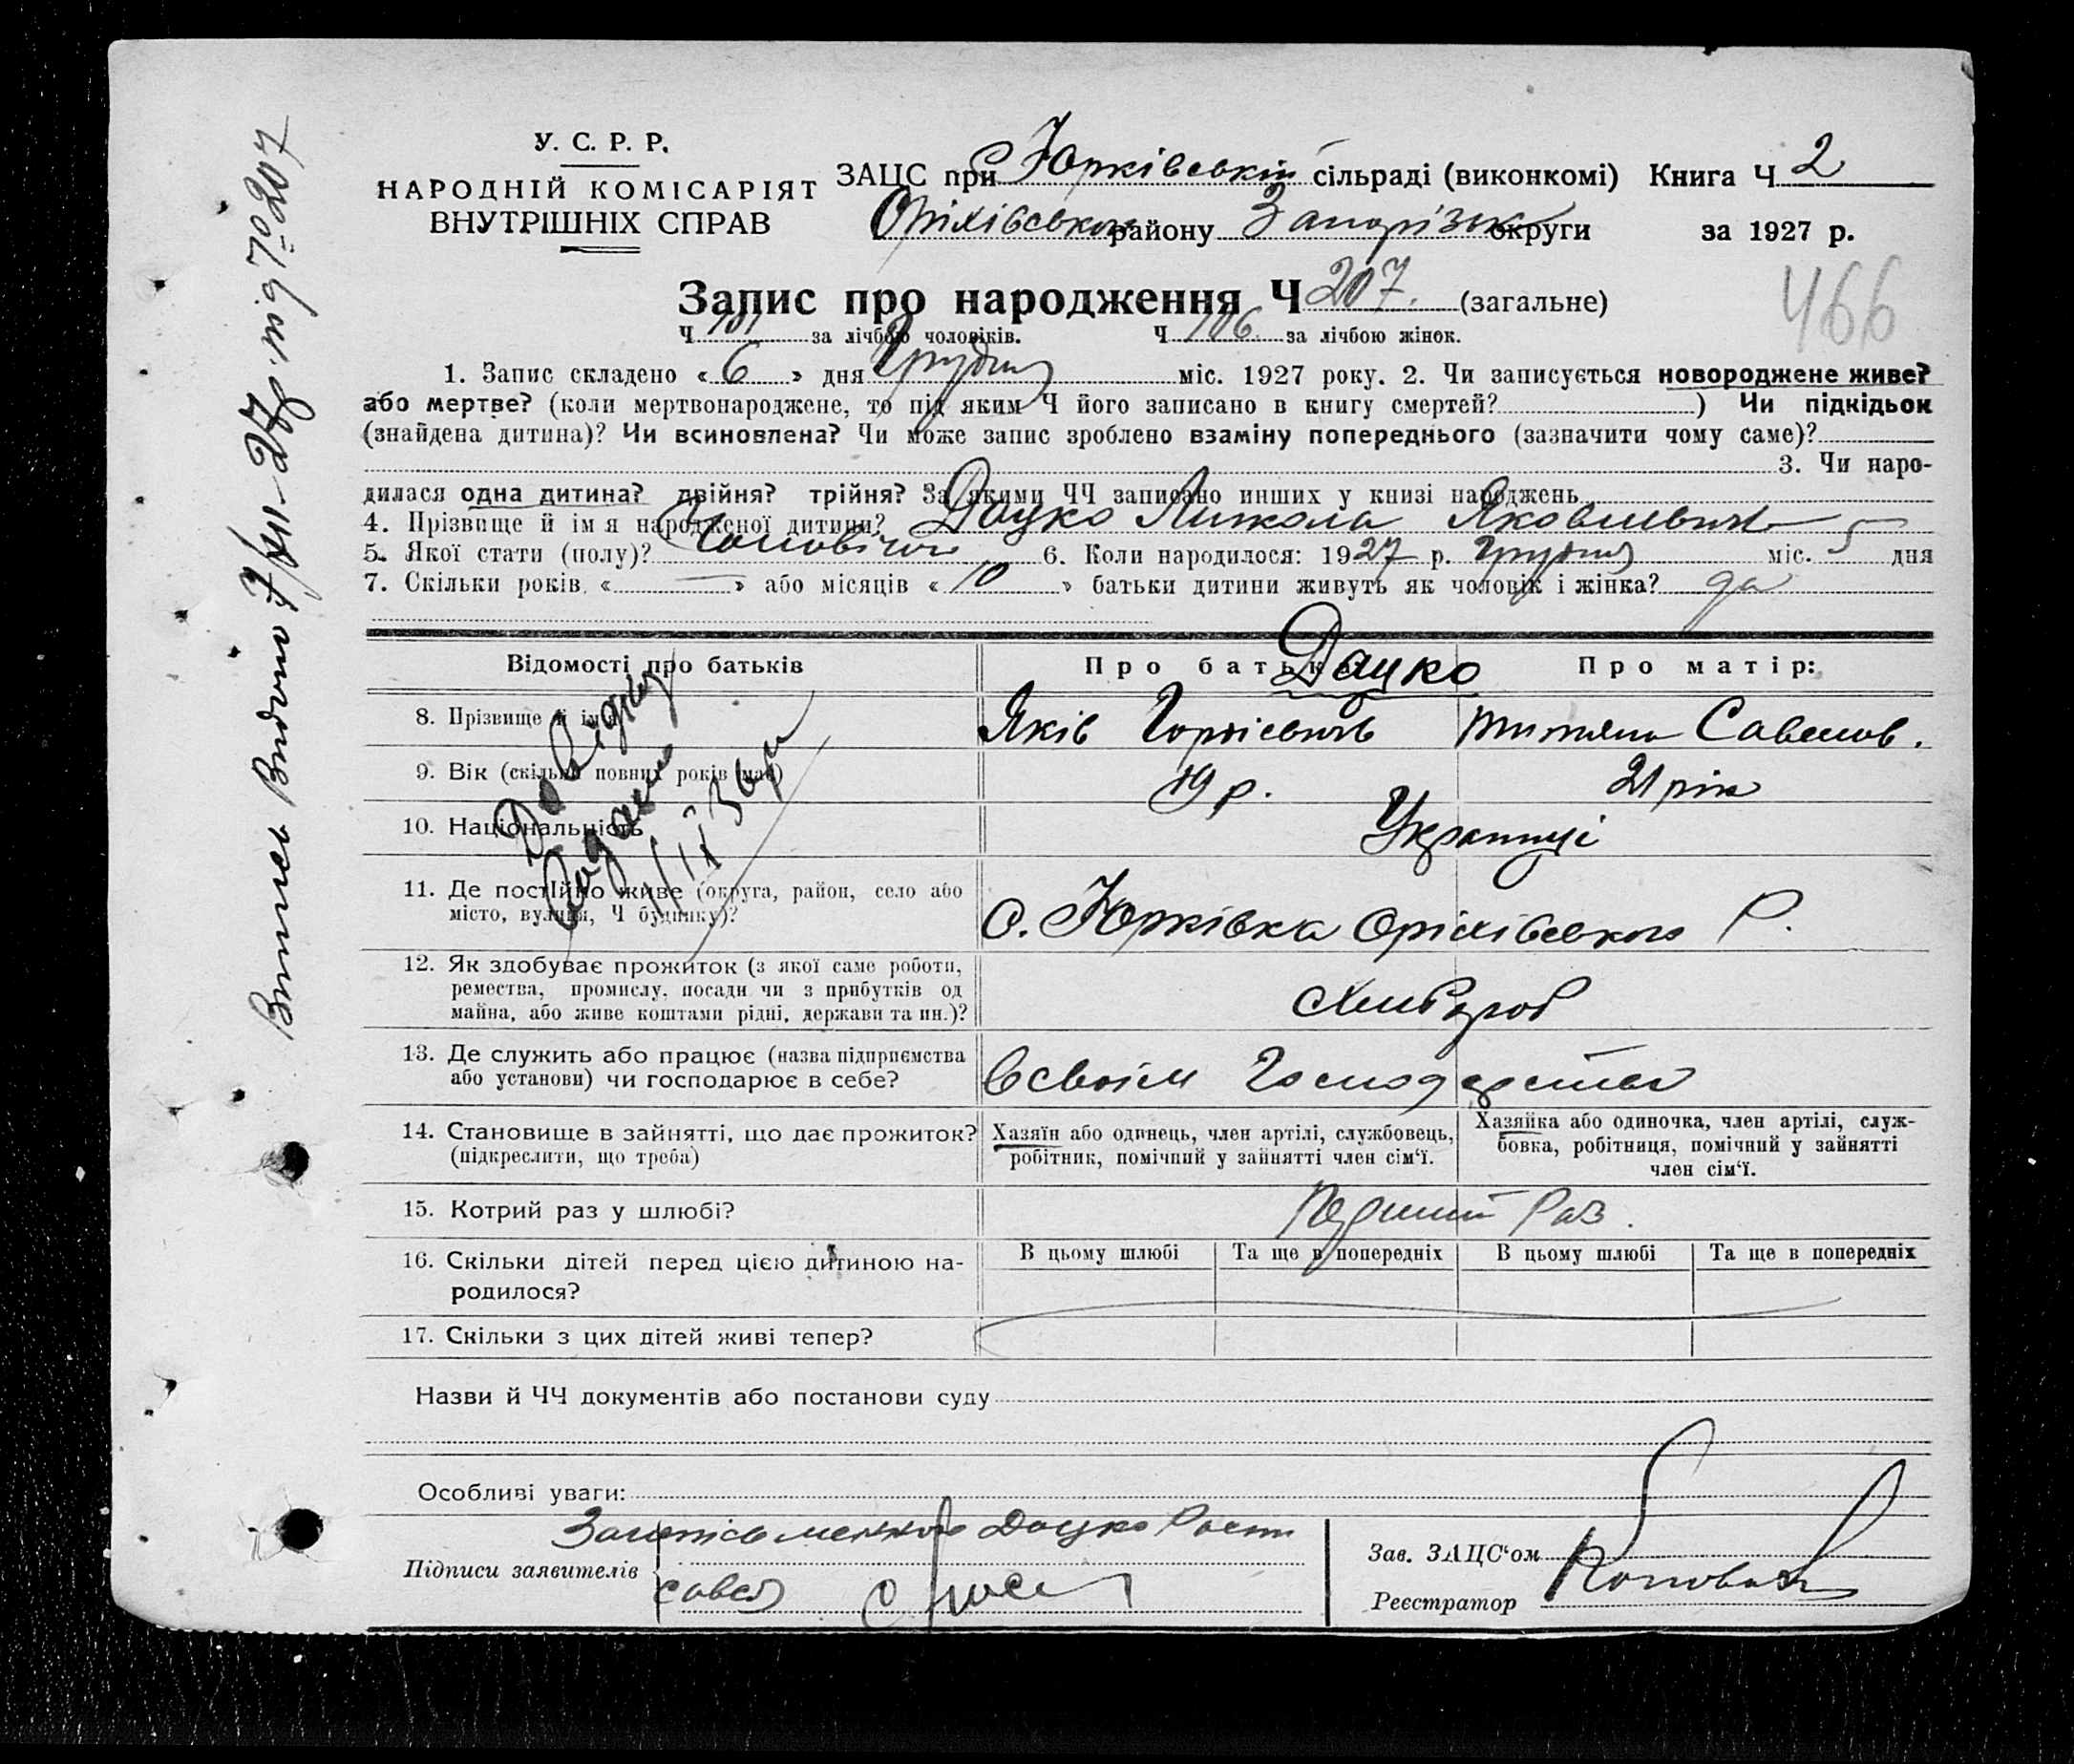 У. С. Р. Р.
НАРОДНІЙ КОМІСАРІЯТ
ВНУТРІШНІХ СПРАВ
ЗАЦС при Юрківській сільраді (виконкомі) Книга Ч 2
Оріхівського району Запорізьк округи за 1927 р.
466
Запис про народження Ч 207. (загальне)
Ч 101 за лічбою чоловіків. Ч 106. за лічбою жінок.
1. Запис складено « 6 » дня Грудня міс. 1927 року. 2. Чи записується новороджене живе?
або мертве? (коли мертвонароджене, то під яким Ч його записано в книгу смертей? ) Чи підкідьок
(знайдена дитина)? Чи всиновлена? Чи може запис зроблено взаміну попереднього (зазначити чому саме)?
3. Чи наро-
дилася одна дитина? двійня? трійня? За якими ЧЧ записано инших у книзі народжень
4. Прізвище й ім я народженої дитини? Дацко Микола Яковлевич
5. Якої стати (полу)? Чоловічої 6. Коли народилося: 1927 р. Грудня міс. 5 дня
7. Скільки років « — » або місяців « 10 » батьки дитини живуть як чоловік і жінка? да
Відомості про батьків Про батька: Про матір:
Дацко
8. Прізвище й ім'я Яків Гордієвичь Титяна Савелов.
9. Вік (скільки повних років має) 19 р. 21 рік
10. Національність Українці
11. Де постійно живе (округа, район, село або
місто, вулиця, Ч будинку)? С. Юрківка Оріхівського Р.
12. Як здобуває прожиток (з якої саме роботи,
ремества, промислу, посади чи з прибутків од
майна, або живе коштами рідні, держави та ин.)? Хлибороб
13. Де служить або працює (назва підприємства
або установи) чи господарює в себе? Всвоім Господарстві
14. Становище в зайнятті, що дає прожиток?
(підкреслити, що треба)
Хазяїн або одинець, член артілі, службовець,
робітник, помічний у зайнятті член сім'ї.
Хазяйка або одиночка, член артілі, служ-
бовка, робітниця, помічний у зайнятті
член сім'ї.
15. Котрий раз у шлюбі? Перший Раз.
16. Скільки дітей перед цією дитиною на-
родилося?
В цьому шлюбі Та ще в попередніх В цьому шлюбі Та ще в попередніх
17. Скільки з цих дітей живі тепер?
Назви й ЧЧ документів або постанови суду
Особливі уваги:
Дацко
Підписи заявителів
Зав. ЗАЦС'ом
Реєстратор
Випись Видано 7/XII-27р. під № 207
Довідку
видано